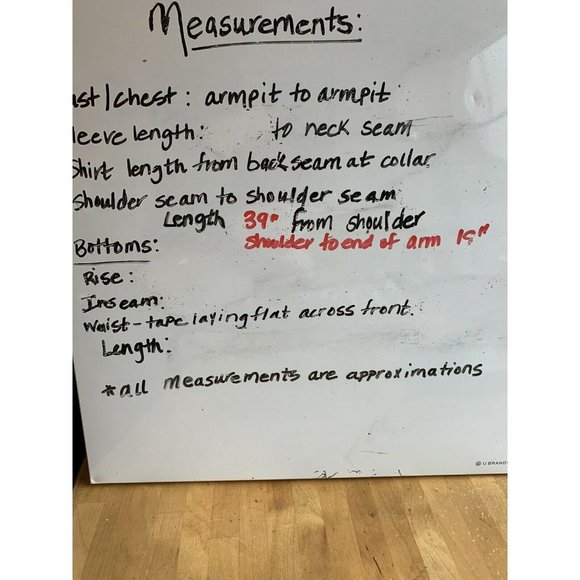 Measurements:
ust/chest: armpit to armpit
leeve length: to neck seam
Shirt length from back seam at collar
Shoulder seam to shoulder seam
Length 39" from shoulder
Bottoms: Shoulder to end of arm 19"
Rise:
Inseam:
Waist-tape laying flat across front.
Length:
*all measurements are approximations
U BRAND